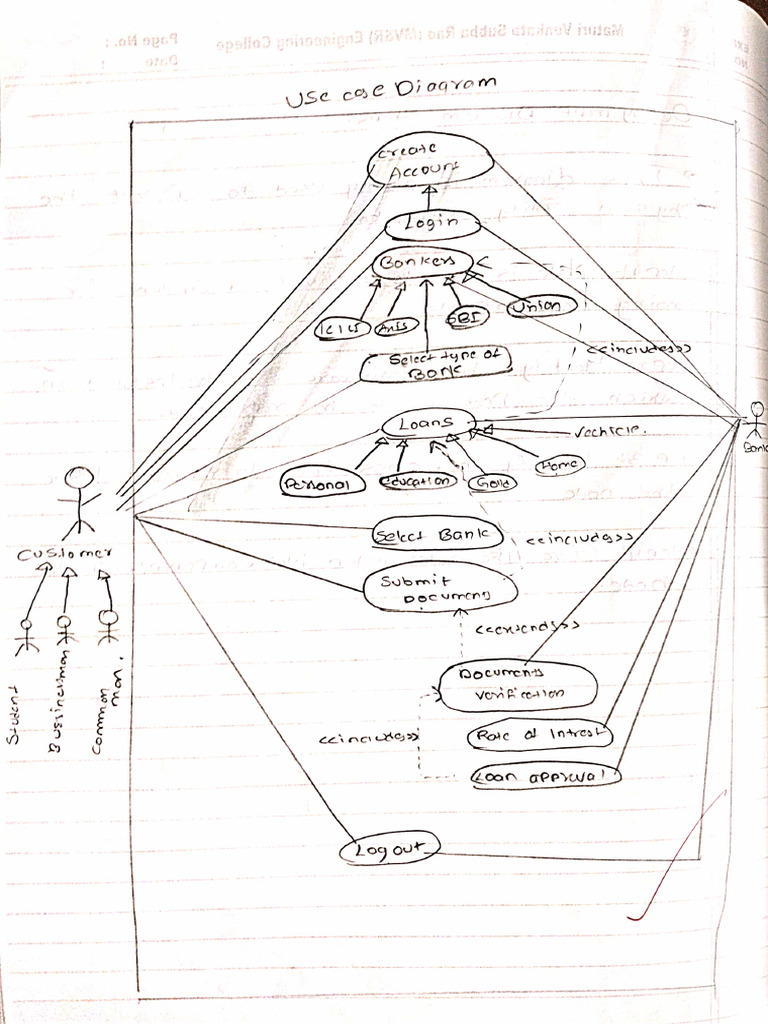 Maturi Venkata Subba Rao (MVSR) Engineering College
Page No. :
Date :
Use case Diagram
create
Account
Login
Bankers
ICICI
Axis
SBI
Union
Select type of
BANK
<<includes>>
Loans
Vechicle.
Personal
education
Gold
Home
Bank
Customer
Select Bank
<<includes>>
Submit
Document
<<extends>>
Documents
verification
<<includes>>
Rate of Intrest
Loan approval
Student
Bussinessman
Common
man.
Logout